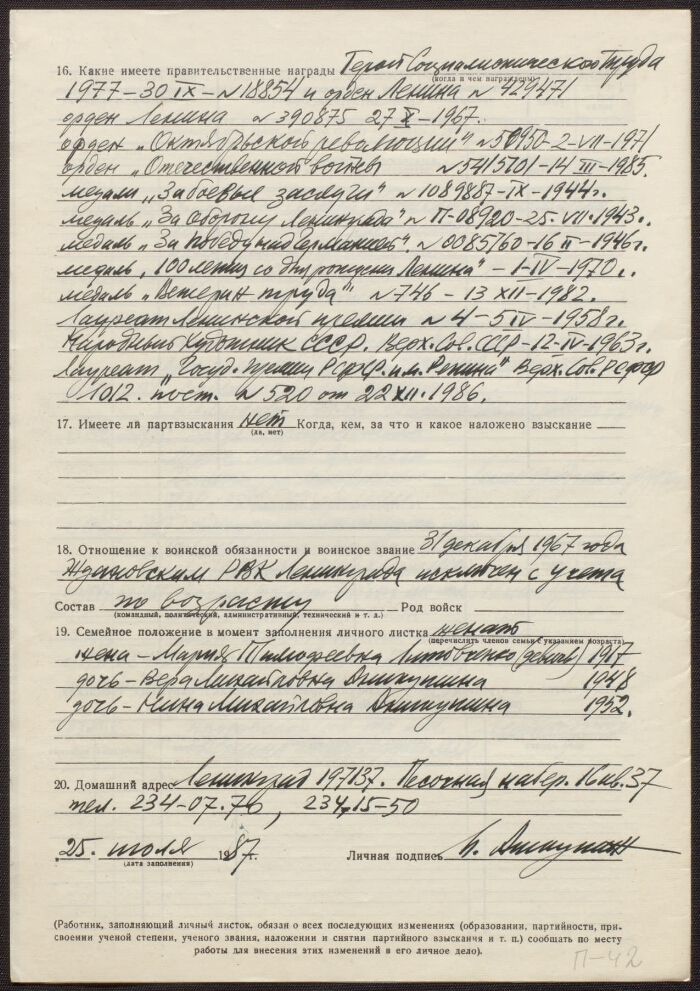 16. Какие имеете правительственные награды Герой Социалистического Труда
(когда и чем награждены)
1977 – 30 IX – N 18854 и орден Ленина N 429471
орден Ленина N 390875 27 X – 1967.
орден „Октябрьской революции" N 50950 – 2 – VII – 1971
орден „Отечественной войны N 5415701 – 14 III – 1985.
медаль „За боевые заслуги" N 1089887 – IX – 1944г.
медаль „За оборону Ленинграда" N П-08920 – 25. VII. 1943.
медаль „За победу над Германией". N 0085760 – 16 II – 1946г.
медаль „100 летия со дня рождения Ленина" – 1 – IV – 1970г.
медаль „Ветеран труда" N 746 – 13 XII – 1982.
Лауреат Ленинской премии N 4 – 5 IV – 1958г.
Народный художник СССР. Верх. Сов. СССР – 12 – IV – 1963г.
Лауреат „Госуд. премии РСФСР им. Репина" Верх. Сов. РСФСР
пост. N 520 от 22 XII. 1986.
17. Имеете ли партвзыскания нет Когда, кем, за что и какое наложено взыскание
(да, нет)
18. Отношение к воинской обязанности и воинское звание 31 декабря 1967 года
Ждановским РВК Ленинграда исключен с учета
Состав по возрасту Род войск
(командный, политический, административный, технический и т. д.)
19. Семейное положение в момент заполнения личного листка женат
(перечислить членов семьи с указанием возраста)
жена – Мария Тимофеевна Литовченко 1917
дочь – Вера Михайловна Аникушина 1948
дочь – Нина Михайловна Аникушина 1952.
20. Домашний адрес Ленинград 197137. Песочная набер. 16 кв. 37
тел. 234-07.76, 234-15-50
25. июля 1987г.
(дата заполнения)
Личная подпись М. Аникушин
(Работник, заполняющий личный листок, обязан о всех последующих изменениях (образовании, партийности, при-
своении ученой степени, ученого звания, наложении и снятии партийного взыскания и т. п.) сообщать по месту
работы для внесения этих изменений в его личное дело).
П-42